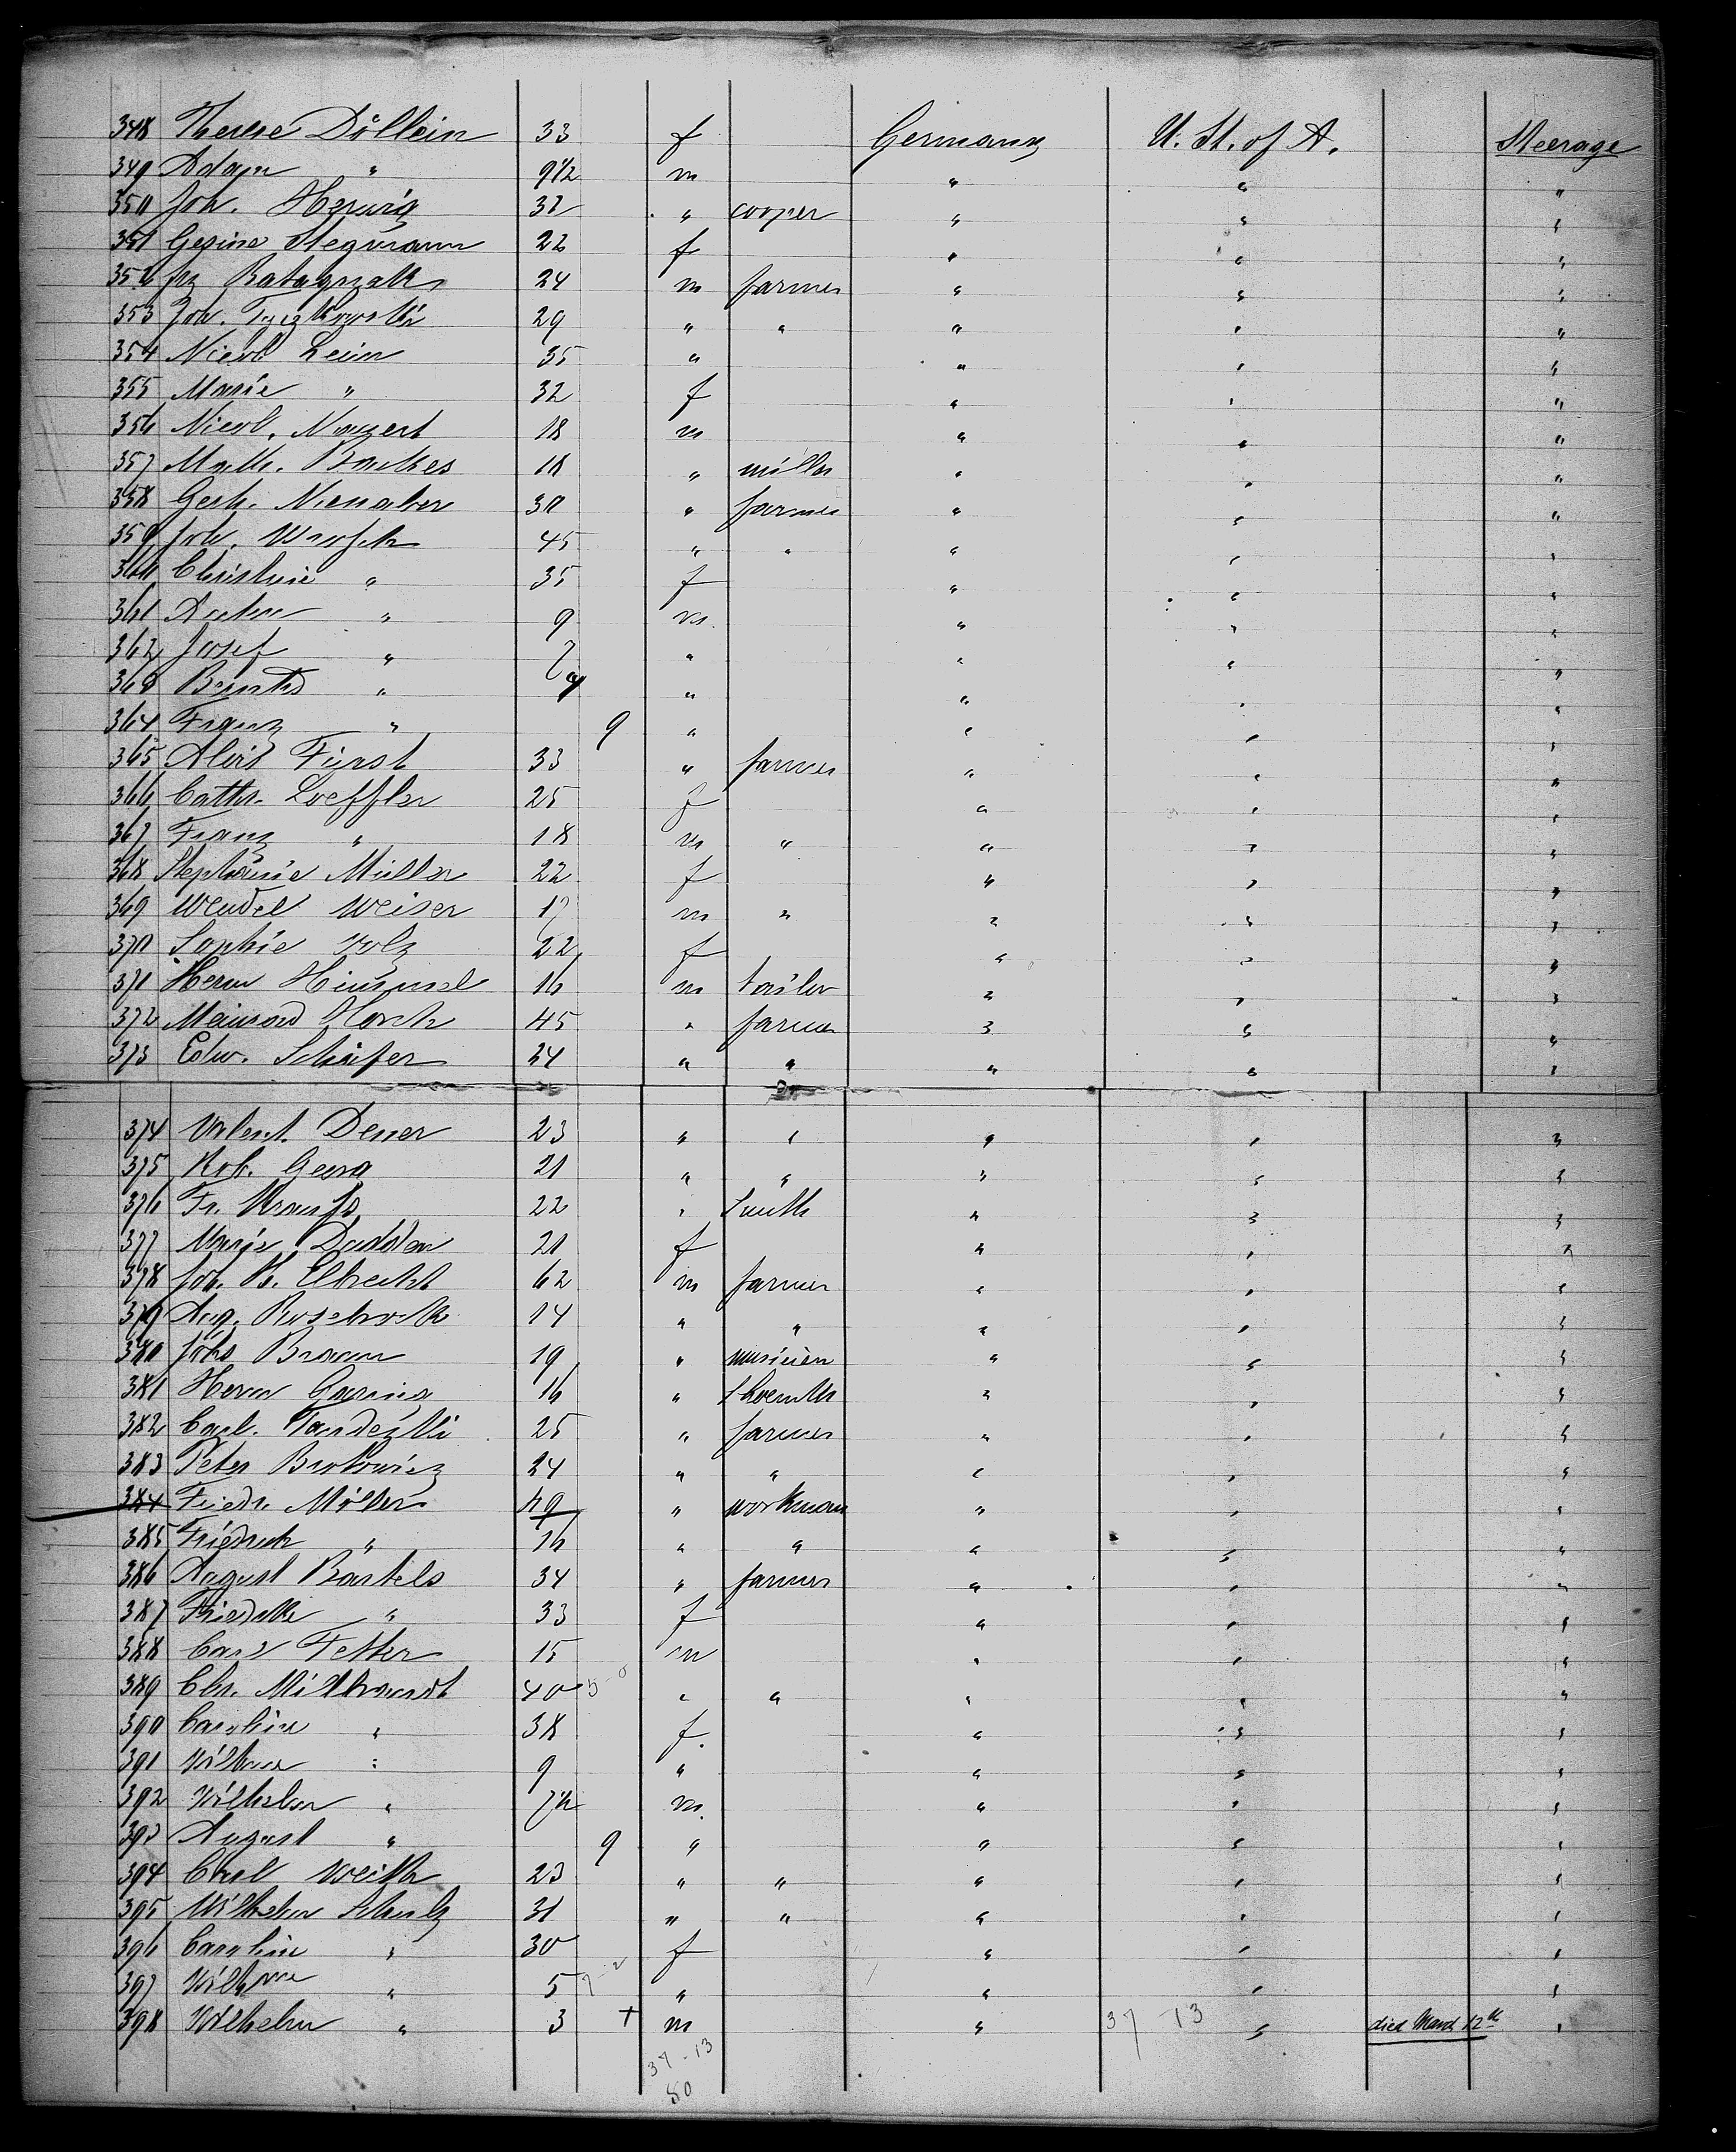 348 Therese Döllein 33 f Germany U. St. of A. Steerage
349 Adam " 9 1/2 m " " "
350 Joh. Herwig 32 " cooper " " "
351 Gesine Stegmann 22 f " " "
352 24 m farmer " " "
353 Joh. 29 " " " " "
354 Nicol Leim 35 " " " "
355 Marie " 32 f " " "
356 Nicol. 18 m " " "
357 Math. Backes 18 " miller " " "
358 Gerh. Nienaber 30 " farmer " " "
359 Joh. 45 " " " " "
360 Christine " 35 f " " "
361 Anton " 9 m " " "
362 Josef " 7 " " " "
363 " 4 " " " "
364 Franz " 9 " " " "
365 Alois Fürst 33 " farmer " " "
366 Cath. Loeffler 25 f " " "
367 Franz " 18 m " " " "
368 Stephanie Müller 22 f " " "
369 Wendel Weiser 17 m " " " "
370 Sophie Volz 22 f " " "
371 Herm Himmel 16 m tailor " " "
372 Meinrad 45 " farmer " " "
373 Edw. Schäfer 24 " " " " "
374 Valent. Dener 23 " " " " "
375 Rob. Georg 21 " " " " "
376 Fr. Krauss 22 " Smith " " "
377 Marie Dadden 21 f " " "
378 Joh. H. Elbrecht 62 m farmer " " "
379 Aug. 14 " " " " "
380 Johs Braun 19 " musicien " " "
381 Herm Gasing 16 " " " "
382 Carl. 25 " farmer " " "
383 Peter 24 " " " " "
384 Friedr. Möller 49 " workman " " "
385 Friedrich " 16 " " " " "
386 August Bartels 34 " farmer " " "
387 " 33 f " " "
388 Carl Fetter 15 m " " "
389 Chr. Milbrandt 40 5-0 " " " " "
390 Caroline " 38 f. " " "
391 Wilhme " 9 " " " "
392 Wilhelm " m. " " "
393 August " 9 " " " "
394 Carl Weith 23 " " " " "
395 Wilhelm Schulz 31 " " " " "
396 Caroline " 30 f " " "
397 Wilhme " 5 7-2 " " " "
398 Wilhelm " 3 + m " 37-13 " died March 12th "
37-13
50